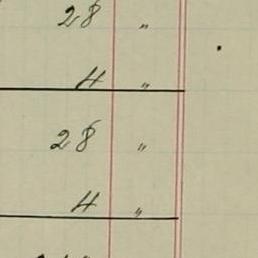 28 "
4 "
28 "
4 "